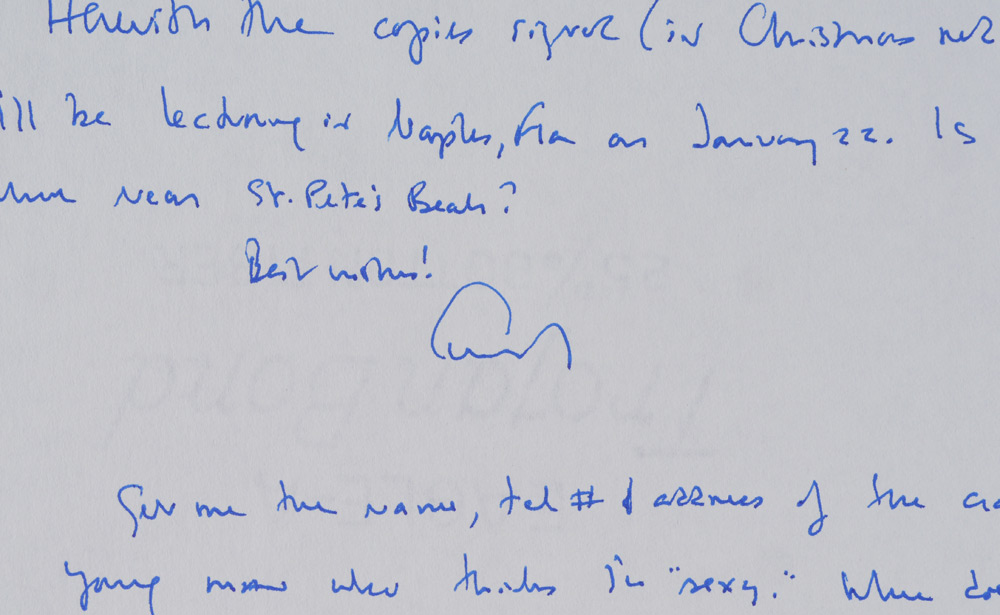 Herewith the copies signed (in Christmas red
ill be lecturing in Naples, Fla on January 22. Is
near St. Pete's Beach?
Best wishes!
Give me the name, tel # & address of the
young man who thinks I'm "sexy." When